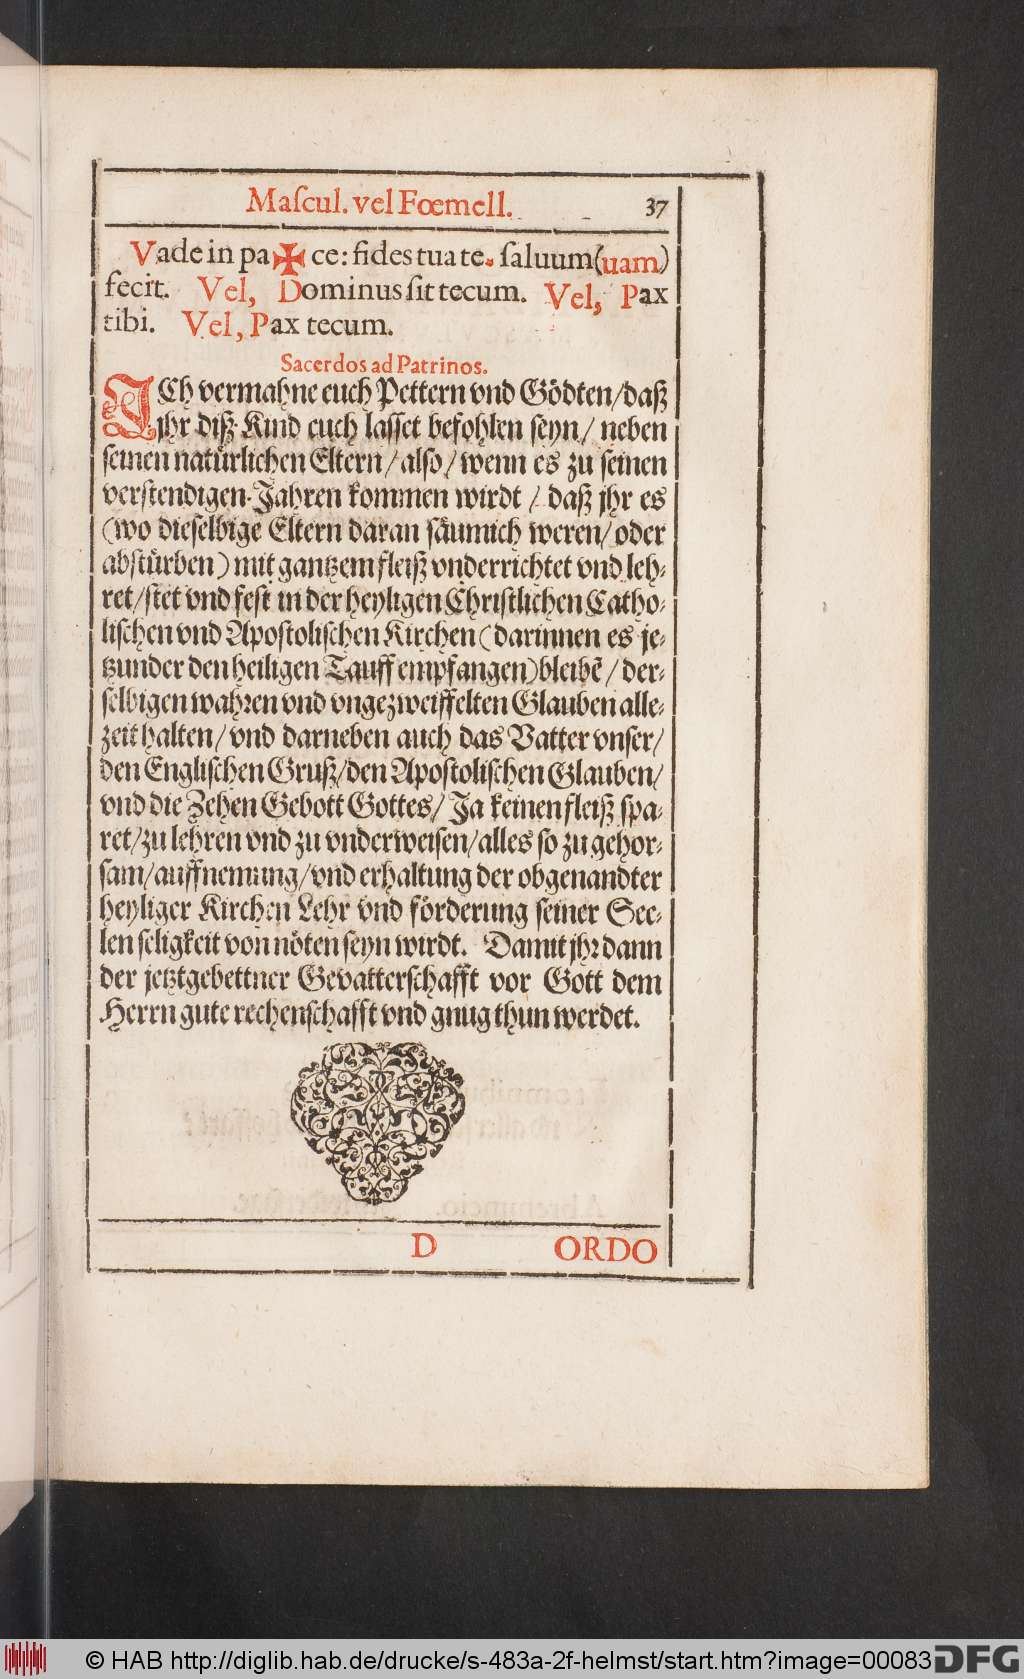 Maſcul. vel Fœmell. 37
Vade in pa✠ce: fides tua te ſaluum(uam)
fecit. Vel, Dominus ſit tecum. Vel, Pax
tibi. Vel, Pax tecum.
Sacerdos ad Patrinos.
ICh vermahne euch Pettern vnd Gödten/daß
jhr diß Kind euch laſſet befohlen ſeyn/ neben
ſeinen natürlichen Eltern/ alſo/ wenn es zu ſeinen
verſtendigen Jahren kommen wirdt/ daß jhr es
(wo dieſelbige Eltern daran ſäumich weren/ oder
abſtürben) mit gantzem fleiß vnderrichtet vnd leh⸗
ret/ſtet vnd feſt in der heyligen Chriſtlichen Catho⸗
liſchen vnd Apoſtoliſchen Kirchen (darinnen es je⸗
tzunder den heiligen Tauff empfangen) bleibē/ der⸗
ſelbigen wahren vnd vngezweiffelten Glauben alle⸗
zeit halten/ vnd darneben auch das Vatter vnſer/
den Engliſchen Gruß/den Apoſtoliſchen Glauben/
vnd die Zehen Gebott Gottes/ Ja keinen fleiß ſpa⸗
ret/zu lehren vnd zu vnderweiſen/alles ſo zu gehor⸗
ſam/auffnemung/vnd erhaltung der obgenandter
heyliger Kirchen Lehr vnd förderung ſeiner See⸗
len ſeligkeit von nöten ſeyn wirdt. Damit jhr dann
der jetztgebettner Gevatterſchafft vor Gott dem
Herrn gute rechenſchafft vnd gnug thun werdet.
D ORDO
© HAB http://diglib.hab.de/drucke/s-483a-2f-helmst/start.htm?image=00083 DFG